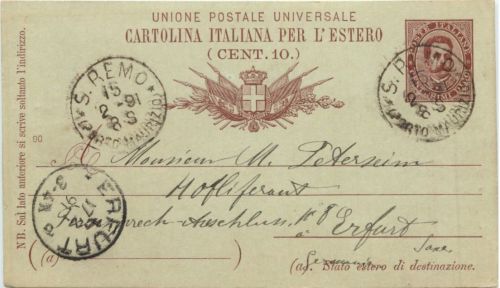 UNIONE POSTALE UNIVERSALE
CARTOLINA ITALIANA PER L'ESTERO
(CENT. 10.)
POSTE ITALIANE
S. REMO
15
2-91
8 S
(PORTO MAURIZIO)
S. REMO
(PORTO MAURIZIO)
90
NB. Sul lato anteriore si scrive soltanto l'indirizzo.
A Monsieur M. Petersein
Hoflieferant
Fernsprech-Anschluss No 8 à Erfurt
Saxe
(a)
(a) Stato estero di destinazione.
Germania
ERFURT
17
3-4 N